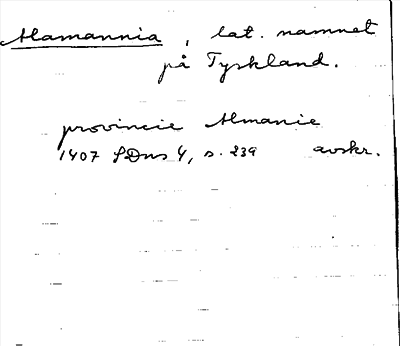 Alamannia, lat. namnet
på Tyskland.
provincie Almanie
1407 SDns 4, s. 239 avskr.